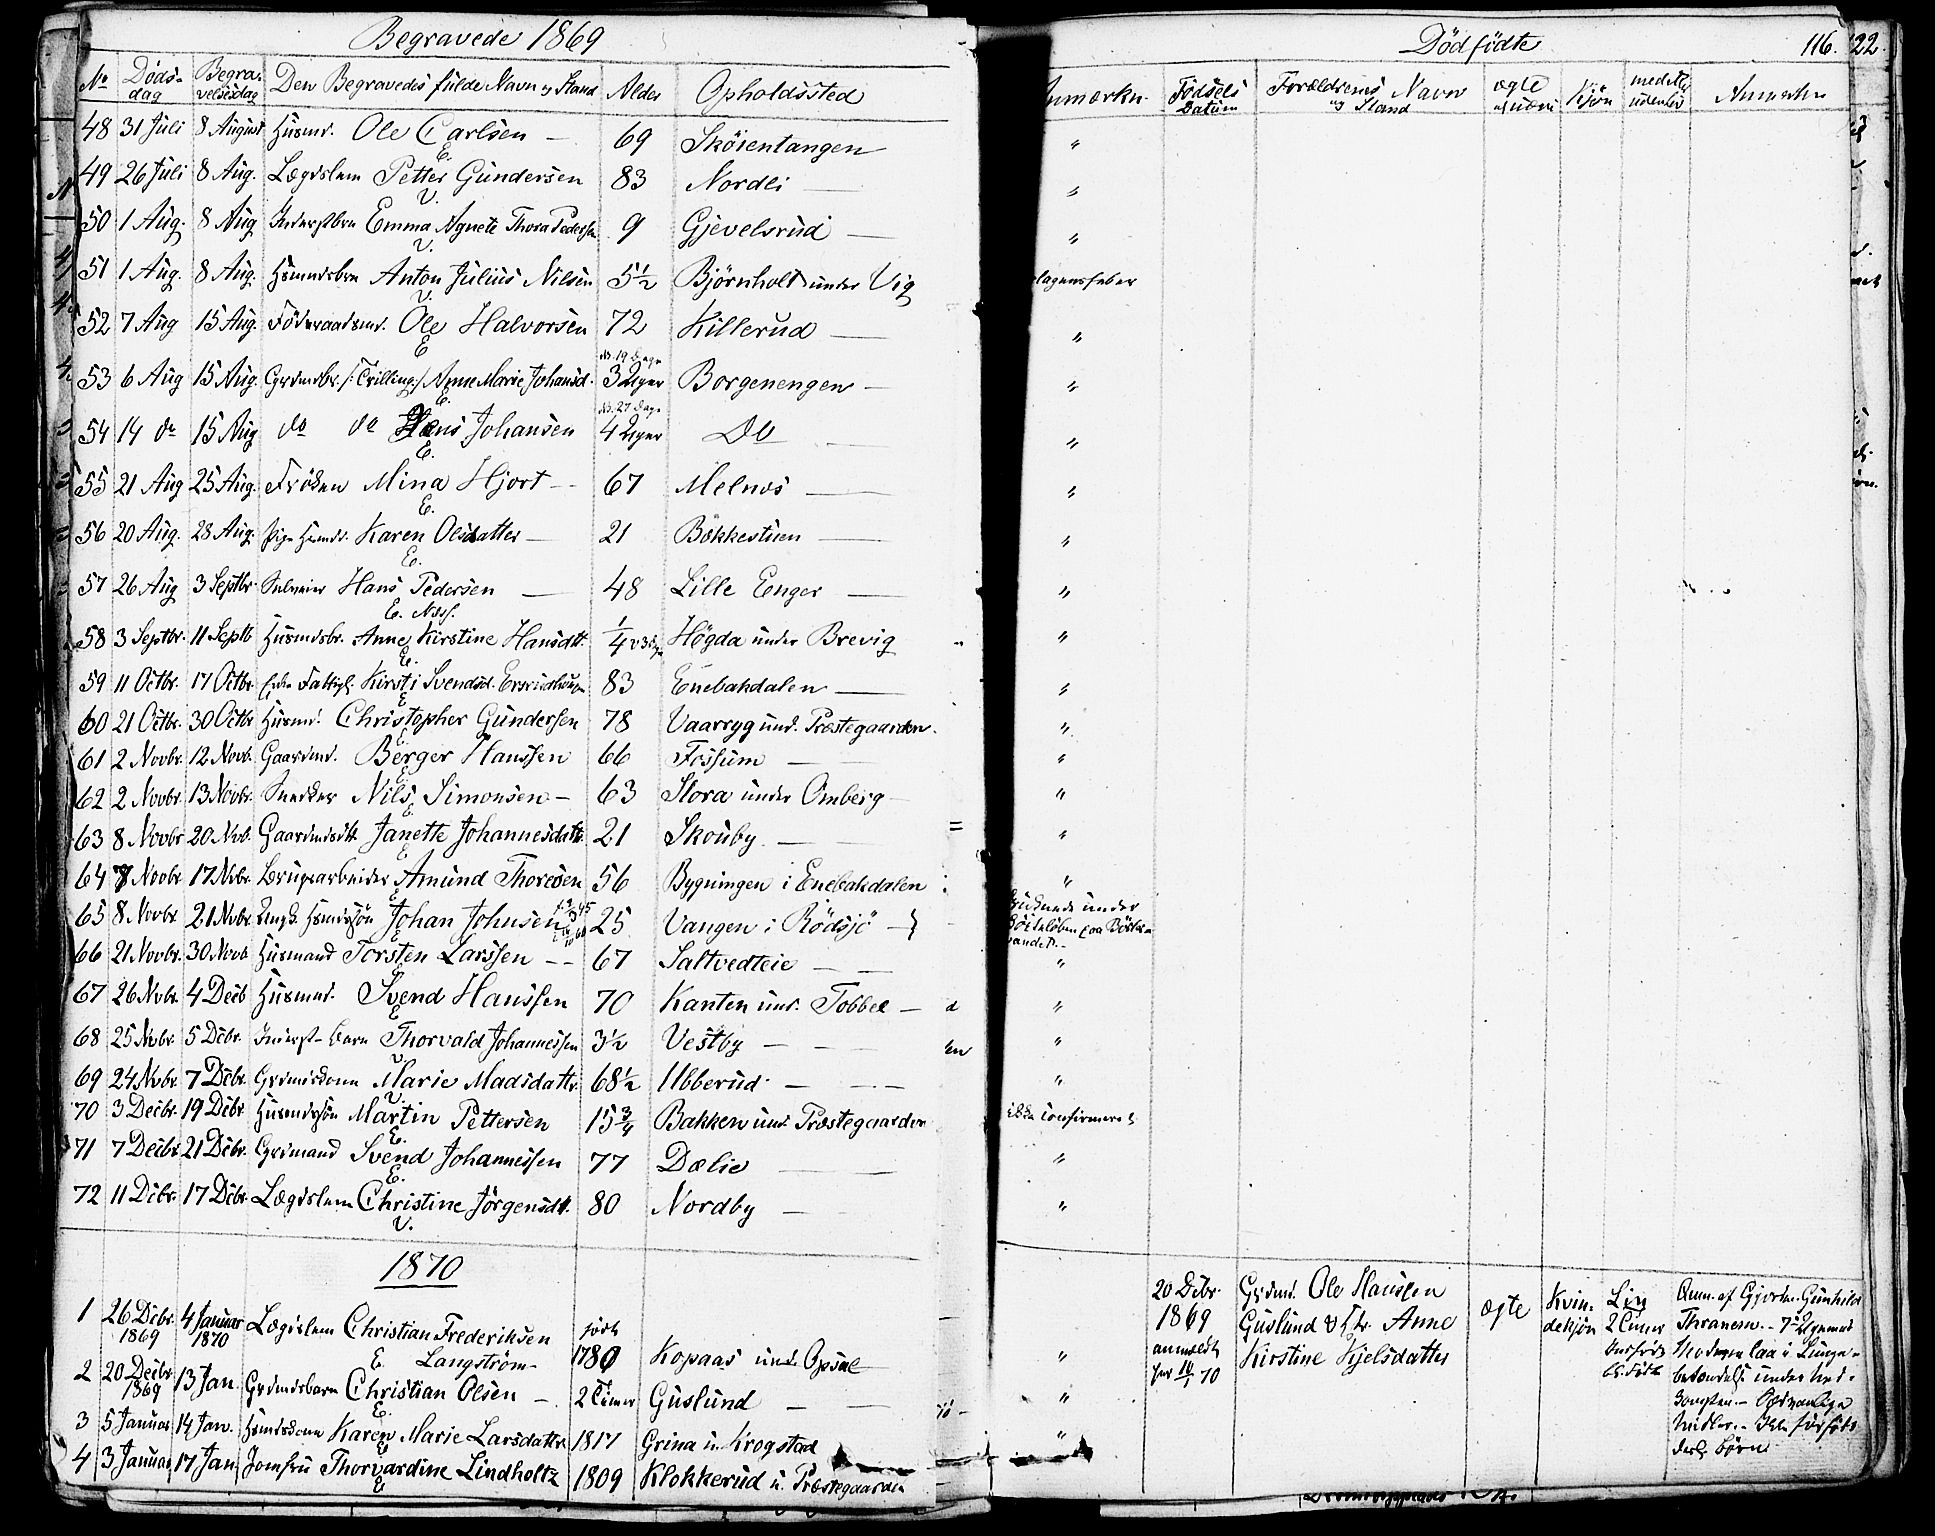 Begravede 1869
No Døds-dag Begravelsesdag Den Begravedes fulde Navn og Stand Alder Opholdssted
48 31 Juli 8 August Husmd. Ole Carlsen — 69 Skøientangen
E.
49 26 Juli 8 Aug. Lægdslem Petter Gundersen 83 Nordli —
V.
50 1 Aug. 8 Aug Inderstbrn Emma Agnete Thora Pedersen 9 Gjevelsrud —
V.
51 1 Aug. 8 Aug. Husmdsbrn Anton Julius Nilsen 5½ Bjørnholt under Vig
V.
52 7 Aug 15 Aug. Føderaadsmd. Ole Halvorsen 72 Killerud —
E
53 6 Aug 15 Aug. Grdmdbr. /: Trilling :/ Anne Marie Johansd. N. 19 Dage 3 Uger Borgenengen —
E.
54 14 do 15 Aug do do Hans Johansen N. 27 Dage 4 Uger Do —
E.
55 21 Aug 25 Aug. Frøken Mina Hjort — 67 Melnes —
E.
56 20 Aug. 28 Aug. Pige Husmds. Karen Olsdatter — 21 Bekkestuen —
E.
57 26 Aug 3 Septbr. Hans Pedersen — 48 Lille Enger —
E.
58 3 Septbr. 11 Septb Husmdsbr. Anne Kirstine Hansdtt. ¼ Høgda under Brevig
E.
59 11 Octbr. 17 Octbr. Enke Fattigl. Kirsti Svendsd. 83 Enebakdalen —
E
60 21 Octbr. 30 Octbr Husmd. Christopher Gundersen 78 Vaarryg und. Præstegaarden.
E.
61 2 Novbr. 12 Novb. Gaardmd. Berger Hanssen 66 Fossum —
E.
62 2 Novbr. 13 Novbr. Snedker Nils Simonsen — 63 Stora under Omberg —
E
63 8 Novbr 20 Nvb. Gaardmdsdtt Janette Johannesdatt. 21 Skouby. —
E
64 7 Novbr 17 Nvbr. Brugsarbeider Amund Thoresen 56 Bygningen i Enebakdalen
E
65 8 Novbr. 21 Nvbr. Ungk. Husmdssøn Johan Johnsen 25 Vangen i Rødsjø —
E
66 21 Novbr. 30 Novb Husmand Torsten Larssen — — 67 Saltvedteie — —
E
67 26 Nvbr. 4 Decb Husmd. Svend Hanssen 70 Kanten und. Tobbel —
E
68 25 Nvbr. 5 Dcbr. Inderst-barn Thorvald Johannessen 3½ Vestby — — —
V.
69 24 Nvbr. 7 Dcbr. Grdmdskone Marie Madsdattr. 68½ Ubberud — — —
V.
70 3 Decbr. 19 Dcbr Husmdssøn Martin Pettersen 15¾ Bakken und. Præstegaarden
E.
71 7 Decbr. 21 Dcbr. Grdmand Svend Johannessen 77 Dælie —
E.
72 11 Dcbr. 17 Dcbr. Lægdslem Christine Jørgensdt. 80 Nordby —
V.
1870
1 26 Dcbr. 1869 4 Januar 1870 Lægdslem Christian Frederiksen Langstrøm født 1780 Kopaas under Opsal
E.
2 20 Decbr. 1869 13 Jan. Grdmdsbarn Christian Olsen — 2 Timer Guslund — —
E.
3 5 Januar 14 Jan. Husmdskone Karen Marie Larsdattr. 1817 Grina u. Krogstad
E
4 3 Januar 17 Jan. Jomfru Thorvardine Lindholtz 1809 Klokkerud u. Præstegaarden
E
Dødfødte
116. 22.
Anmærkn. Fødsels Datum Forældrenes Navn og Stand ægte el. uægte Kjøn Anmærkn
ikke confirmeret
20 Dcbr. 1869 anmeldt før 10/1 70
Grdmd. Ole Hanssen
Guslund & Hr. Anne
Kirstine Kjelsdatter
ægte
Kvindekjøn
Liv
2 Timer
Anm. af Gjordm. Gunhild
Thranem. —
børn